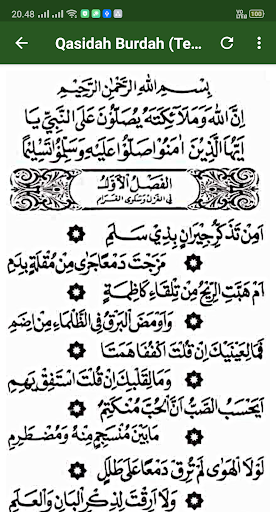 20.48
100
Qasidah Burdah (Te...
بِسْمِ اللهِ الرَّحْمٰنِ الرَّحِيْمِ
اِنَّ اللهَ وَمَلَآئِكَتَهُ يُصَلُّوْنَ عَلَى النَّبِيِّ يَا
اَيُّهَا الَّذِيْنَ اٰمَنُوْا صَلُّوْا عَلَيْهِ وَسَلِّمُوْا تَسْلِيْمًا
اَلْفَصْلُ الْاَوَّلُ
فِي الْغَزَلِ وَشَكْوَى الْغَرَامِ
اَمِنْ تَذَكُّرِ جِيْرَانٍ بِذِيْ سَلَمِ
مَزَجْتَ دَمْعًا جَرٰى مِنْ مُقْلَةٍ بِدَمِ
اَمْ هَبَّتِ الرِّيْحُ مِنْ تِلْقَاءِ كَاظِمَةٍ
وَاَوْمَضَ الْبَرْقُ فِي الظَّلْمَاءِ مِنْ اِضَمِ
فَمَا لِعَيْنَيْكَ اِنْ قُلْتَ اكْفُفَا هَمَتَا
وَمَا لِقَلْبِكَ اِنْ قُلْتَ اسْتَفِقْ يَهِمِ
اَيَحْسَبُ الصَّبُّ اَنَّ الْحُبَّ مُنْكَتِمٌ
مَا بَيْنَ مُنْسَجِمٍ مِنْهُ وَمُضْطَرِمِ
لَوْلَا الْهَوٰى لَمْ تُرِقْ دَمْعًا عَلٰى طَلَلٍ
وَلَا اَرِقْتَ لِذِكْرِ الْبَانِ وَالْعَلَمِ